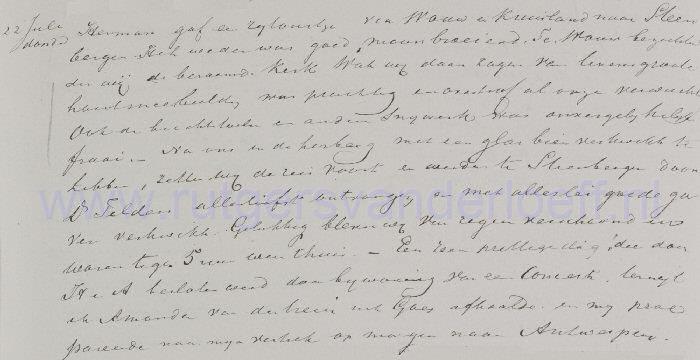 22 Juli Herman gaf een rijtourtje via Wouw en Kruisland naar Steen
dond. bergen. Het weder was goed, maar broeiend. Te Wouw bezochten
wij de beroemde Kerk. Wat wij daar zagen van levensgroote
houtsneebeelden was prachtig en overtrof al onze verwachting
Ook de biechtstoelen en ander snijwerk was onvergelijkelijk
fraai. - Na ons in de herberg met een glas bier verkwikt te
hebben, zetten wij de reis voort en werden te Steenbergen door
Dr Felders allerliefst ontvangen en met allerlei goede ga
ven verkwikt. Gelukkig bleven wij van regen verschoond en
waren tegen 5 uur weer thuis. - Een zeer prettige dag, die door
H en A besloten werd door bijwoning van een Concert, terwijl
ik Amanda van den trein uit Goes afhaalde en mij prae
pareerde van mijn vertrek op morgen naar Antwerpen.
www.rutgersvanderloeff.nl